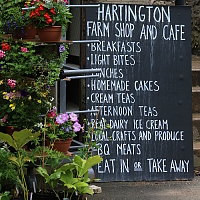 HARTINGTON
FARM SHOP AND CAFE
·BREAKFASTS
·LIGHT BITES
LUNCHES
·HOMEMADE CAKES
·CREAM TEAS
AFTERNOON TEAS
REAL DAIRY ICE CREAM
LOCAL CRAFTS AND PRODUCE
B-B-Q MEATS
EAT IN OR TAKE AWAY